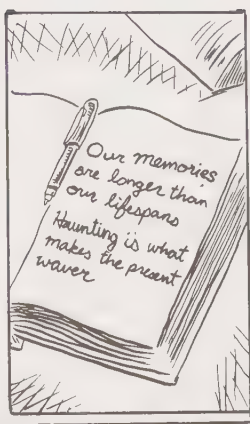 Our memories
are longer than
our lifespans
Haunting is what
makes the present
waver